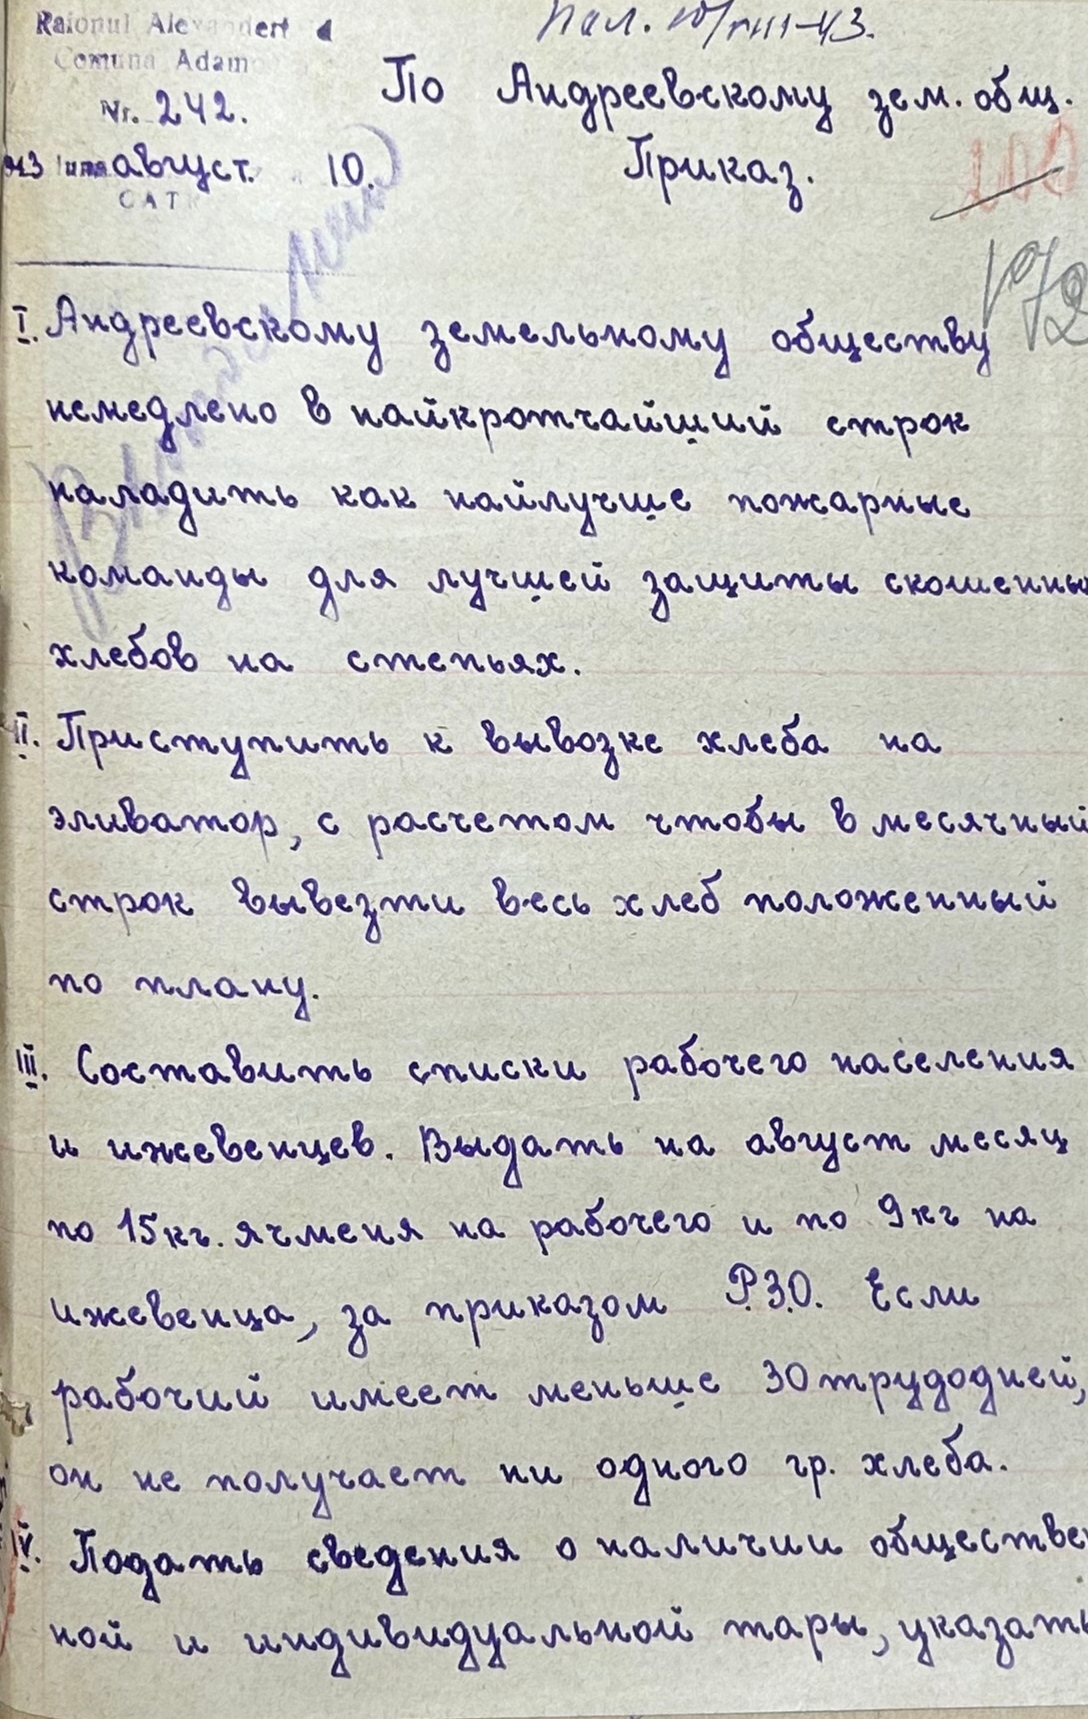 Raionul Alexanderfeld
Comuna Adam
Nr. 242.
943 август. 10.
САТ
пол. 10/VIII-43.
По Андреевскому зем. общ.
Приказ.
172
I. Андреевскому земельному обществу
немедлено в найкротчайший строк
наладить как найлучше пожарные
команды для лучшей защиты скошенны
хлебов на степьях.
II. Приступить к вывозке хлеба на
эливатор, с расчетом чтобы в месячный
строк вывезти весь хлеб положенный
по плану.
III. Составить списки рабочего населения
и ижевенцев. Выдать на август месяц
по 15кг. ячменя на рабочего и по 9кг на
ижевенца, за приказом Р.З.О. Если
рабочий имеет меньше 30 трудодней,
он не получает ни одного гр. хлеба.
IV. Подать сведения о наличии обществен
ной и индивидуальной тары, указать